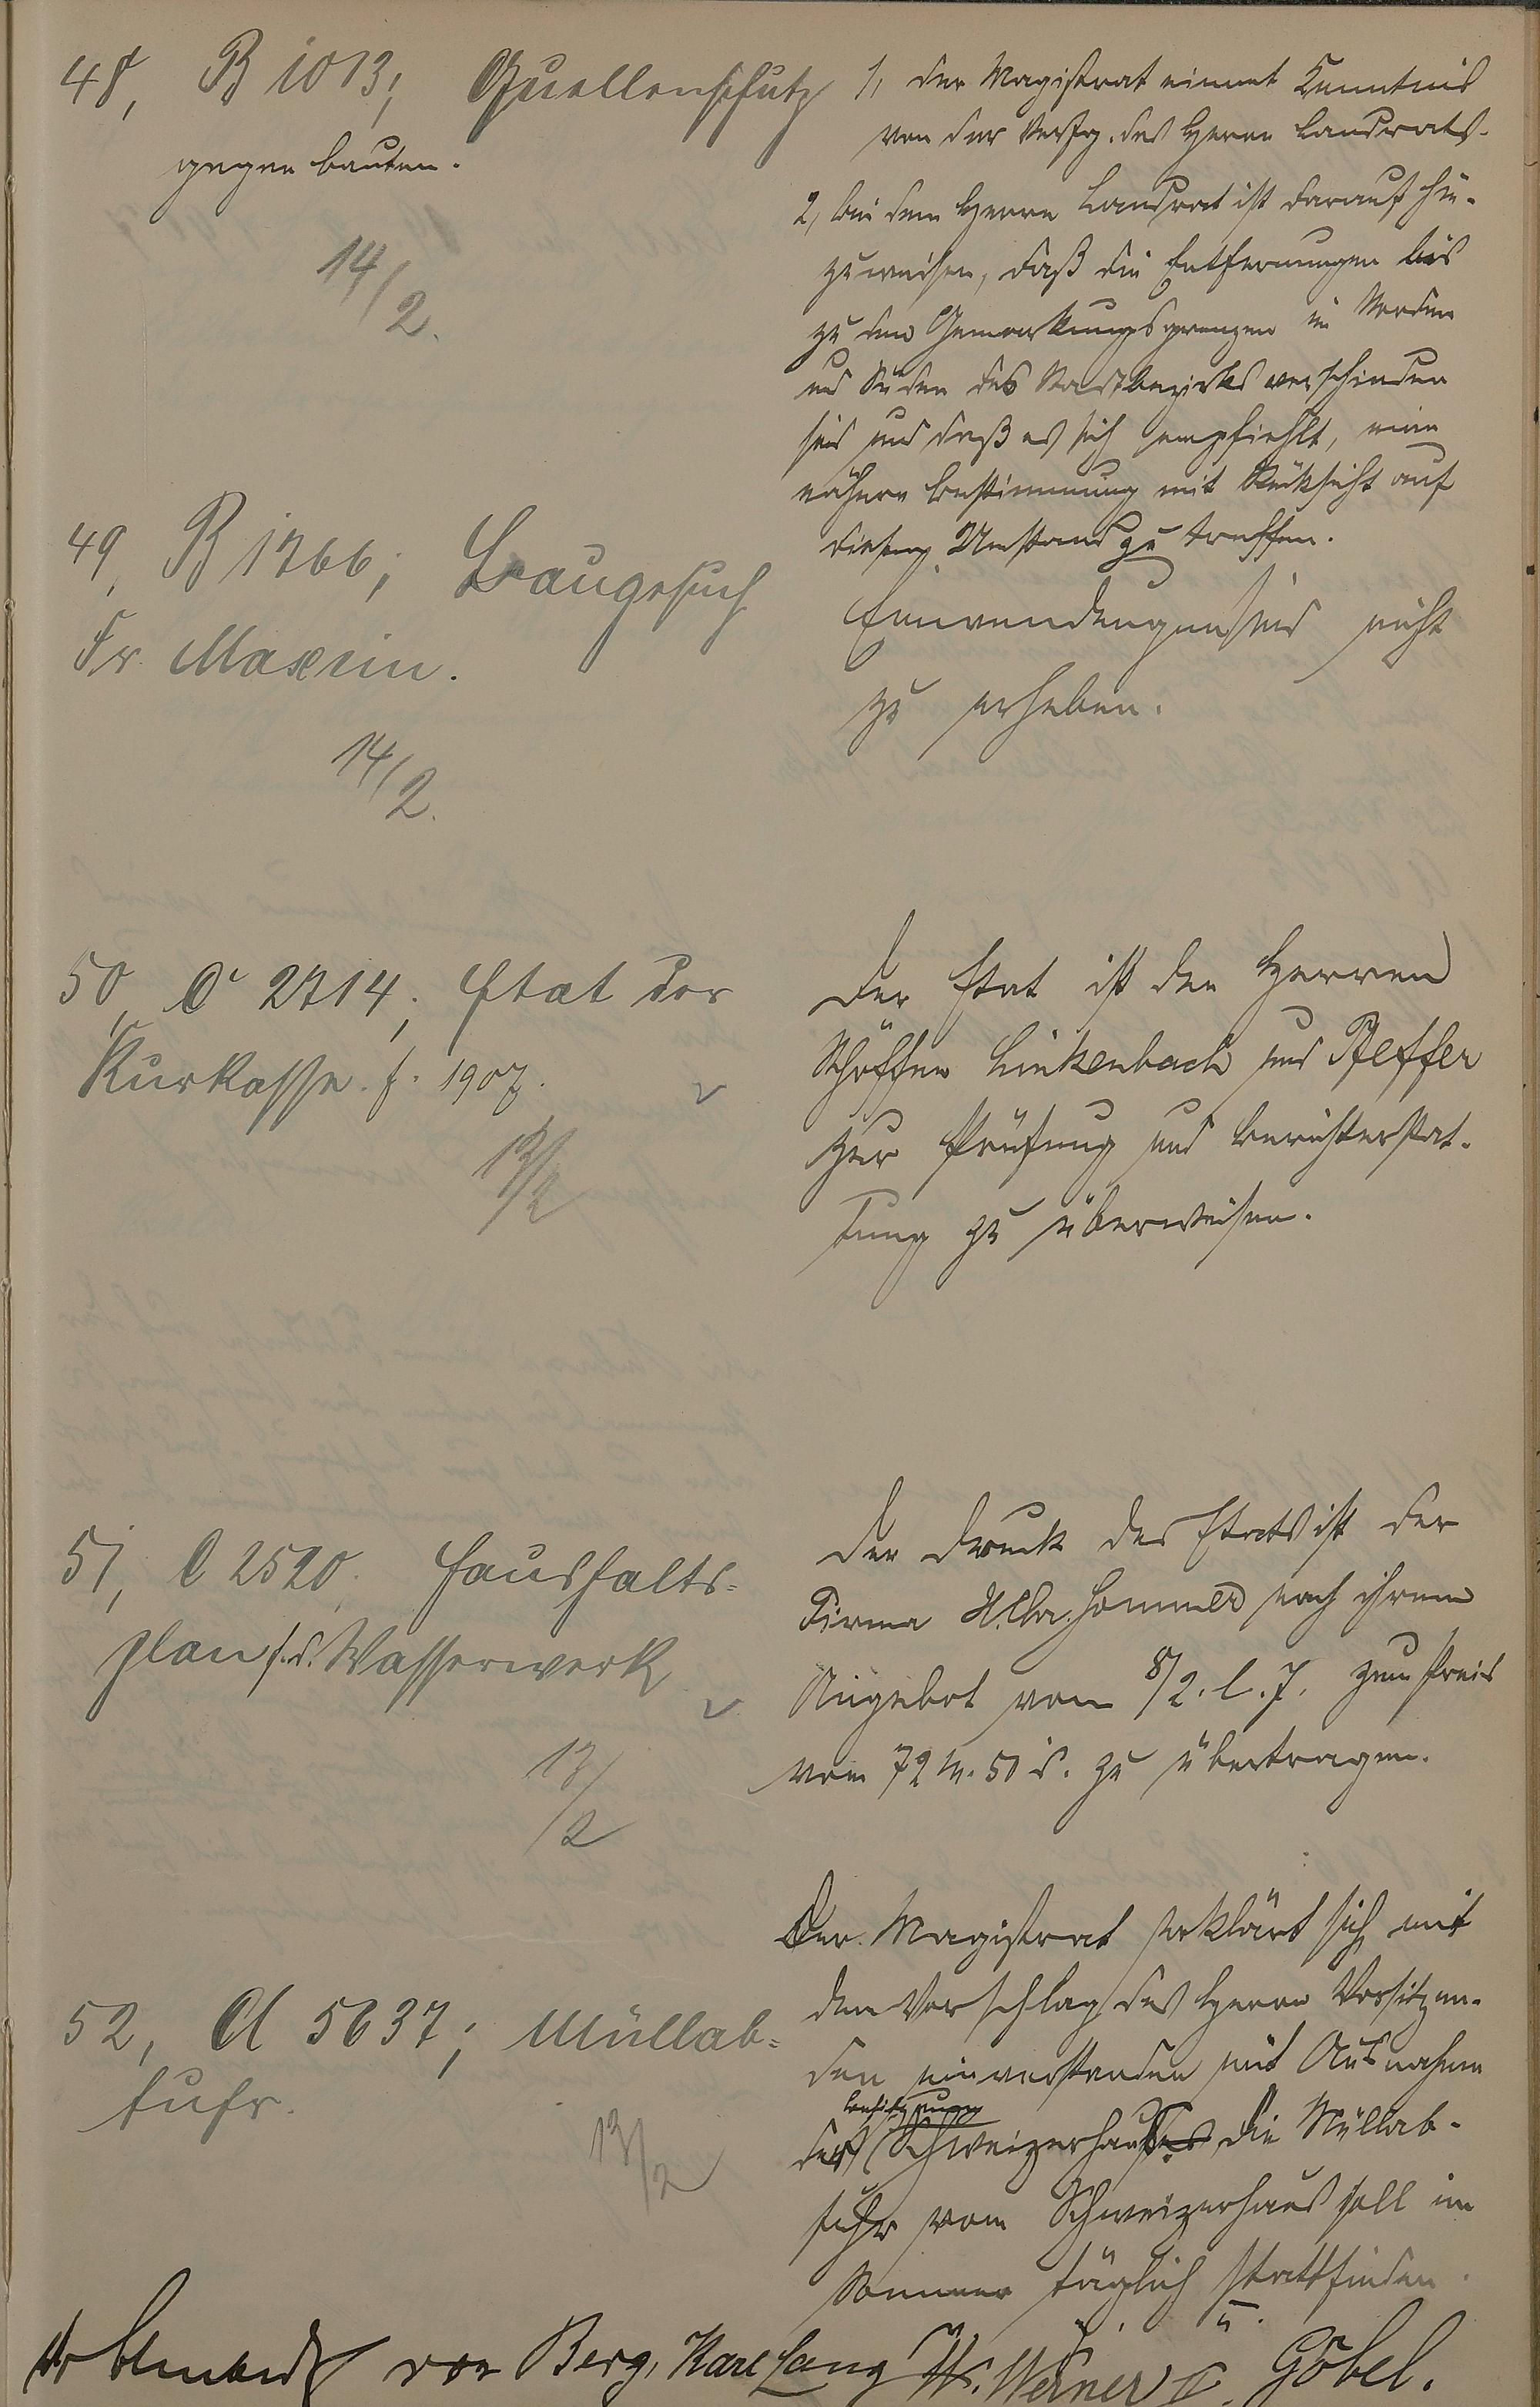 48, B 1013; Quellenschutz
gegen Bauten.
14/2.
1, Der Magistrat nimmt Kenntnis
von der Verfg. des Herrn Landrats.
2, bei dem Herrn Landrat ist darauf hin-
zuweisen, daß die Entfernungen bis
zu den Gemarkungsgrenzen im Norden
und Süden des Stadtbezirks verschieden
sind und daß es sich empfiehlt, eine
nähere Bestimmung mit Rücksicht auf
diesen Umstand zu treffen.
49, B 1766; Baugesuch
Fr. Maxein.
14/2.
Einwendungen sind nicht
zu erheben.
50, C 2714; Etat der
Kurkasse f. 1907.
13/2
Der Etat ist den Herren
Schöffen Linkenbach und Pfeffer
zur Prüfung und Berichterstat-
tung zu überweisen.
51, C 2520. Haushalts-
plan f. d. Wasserwerk
13/2
Der Druck des Etats ist der
Firma Sommer nach ihrem
Angebot vom 8/2. l. J. zum Preis
von 72 M. 50 zu übertragen.
52, A 5637; Müllab-
fuhr.
13/2
Der Magistrat erklärt sich mit
dem Vorschlag des Herrn Vorsitzen-
den einverstanden mit Ausnahme
der Schweizerhaus die Müllab-
fuhr vom Schweizerhaus soll im
Sommer täglich stattfinden.
von Berg, Karl Lang W. Werner Göbel.